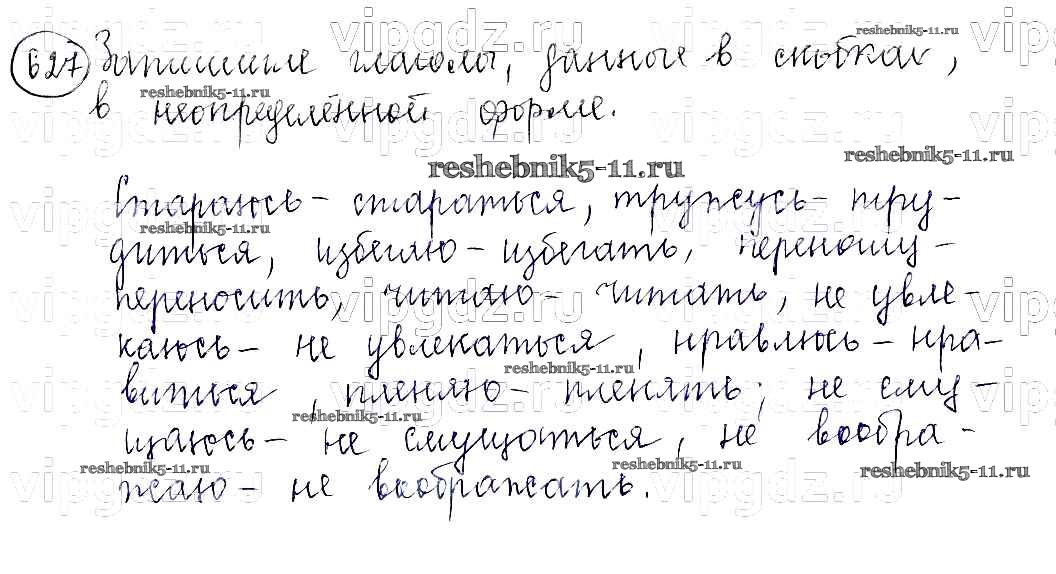 627 Запишите глаголы, данные в скобках,
в неопределённой форме.
reshebnik5-11.ru
Стараюсь - стараться, тружусь - тру-
диться, избегаю - избегать, переношу -
переносить, читаю - читать, не увле-
каюсь - не увлекаться, нравлюсь - нра-
виться, пленяю - пленять, не сму-
щаюсь - не смущаться, не вообра-
жаю - не воображать.